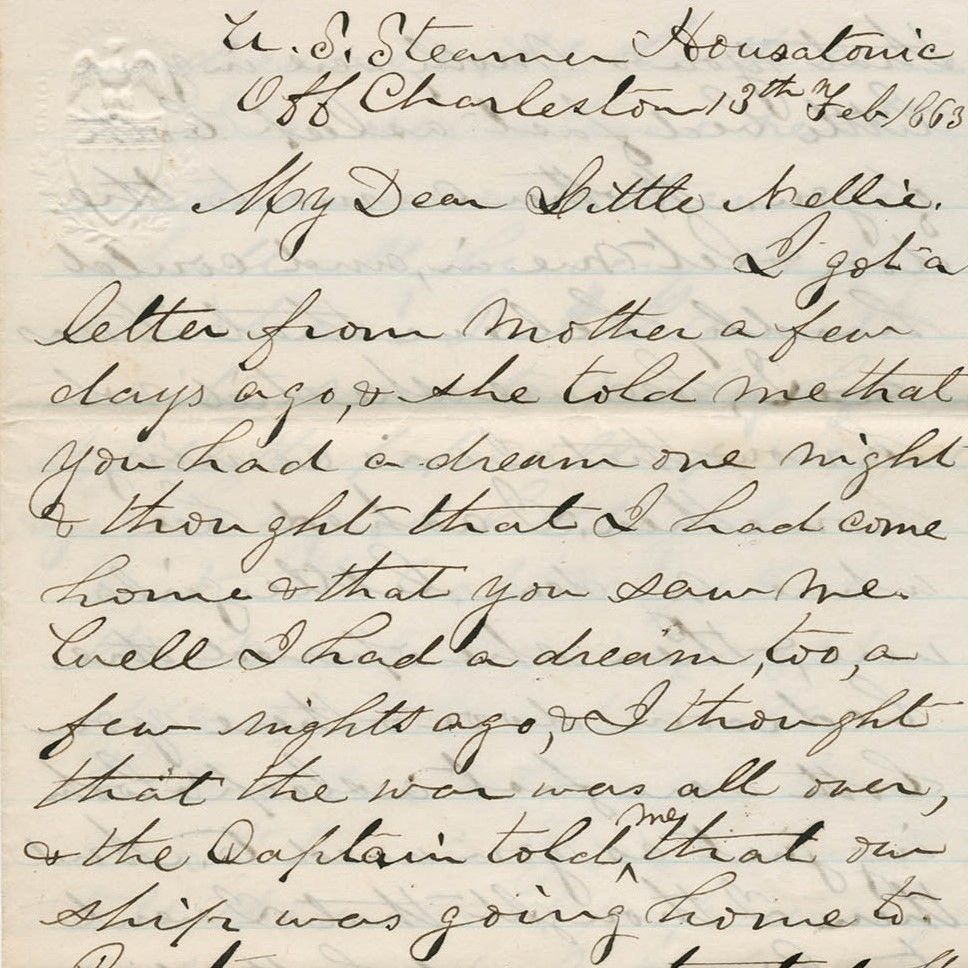 U. S. Steamer Housatonic
Off Charleston 13th Feb 1863
My Dear Little Nellie.
I got a
letter from Mother a few
days ago, & she told me that
you had a dream one night
& thought that I had come
home & that you saw me.
Well I had a dream, too, a
few nights ago, & I thought
that the war was all over,
& the Captain told me that our
ship was going home to